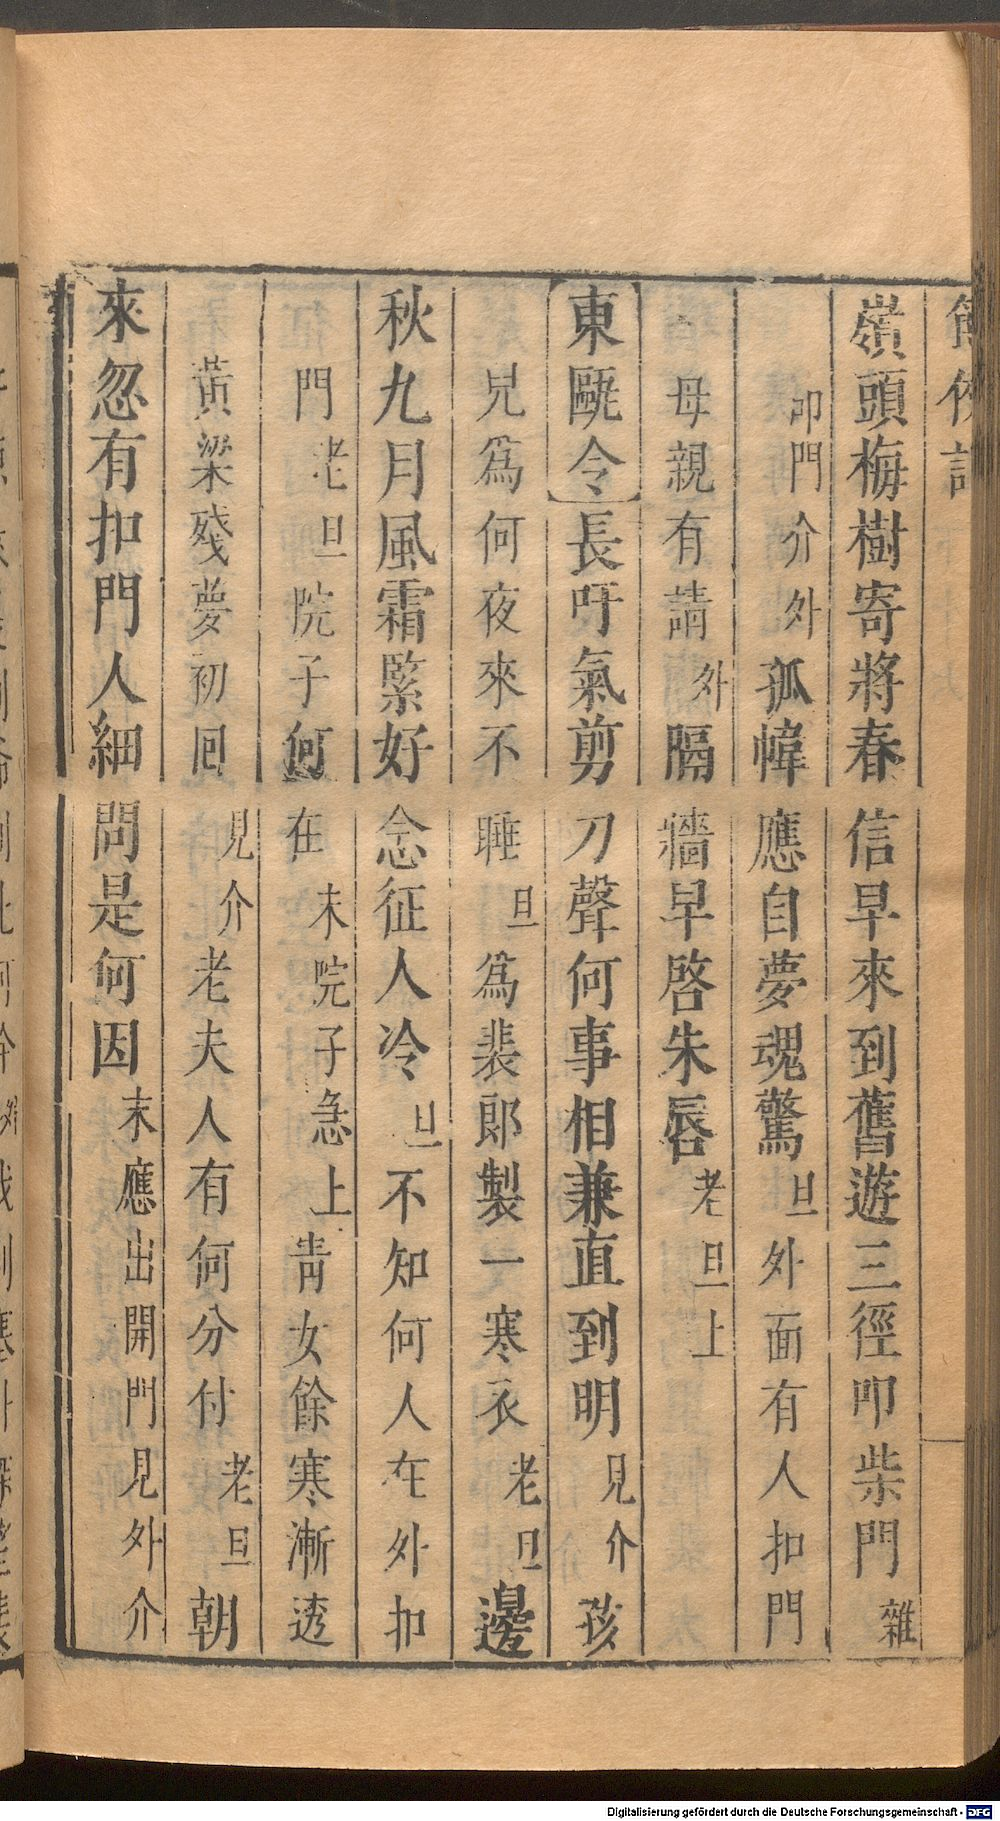 嶺頭梅樹寄將春信早來到舊遊三徑叩柴門雜
叩門介外孤幃應自夢魂驚旦外面有人扣門
母親有請外隔牆早啓朱唇老旦上
東甌令長吁氣剪刀聲何事相兼直到明見介孩
兒爲何夜來不睡旦爲裴郎製一寒衣老旦邊
秋九月風霜緊好念征人冷旦不知何人在外扣
門老旦院子何在末院子急上靑女餘寒漸透
黃粱殘夢初回見介老夫人有何分付老旦朝
來忽有扣門人細問是何因末應出開門見外介
Digitalisierung gefördert durch die Deutsche Forschungsgemeinschaft - DFG